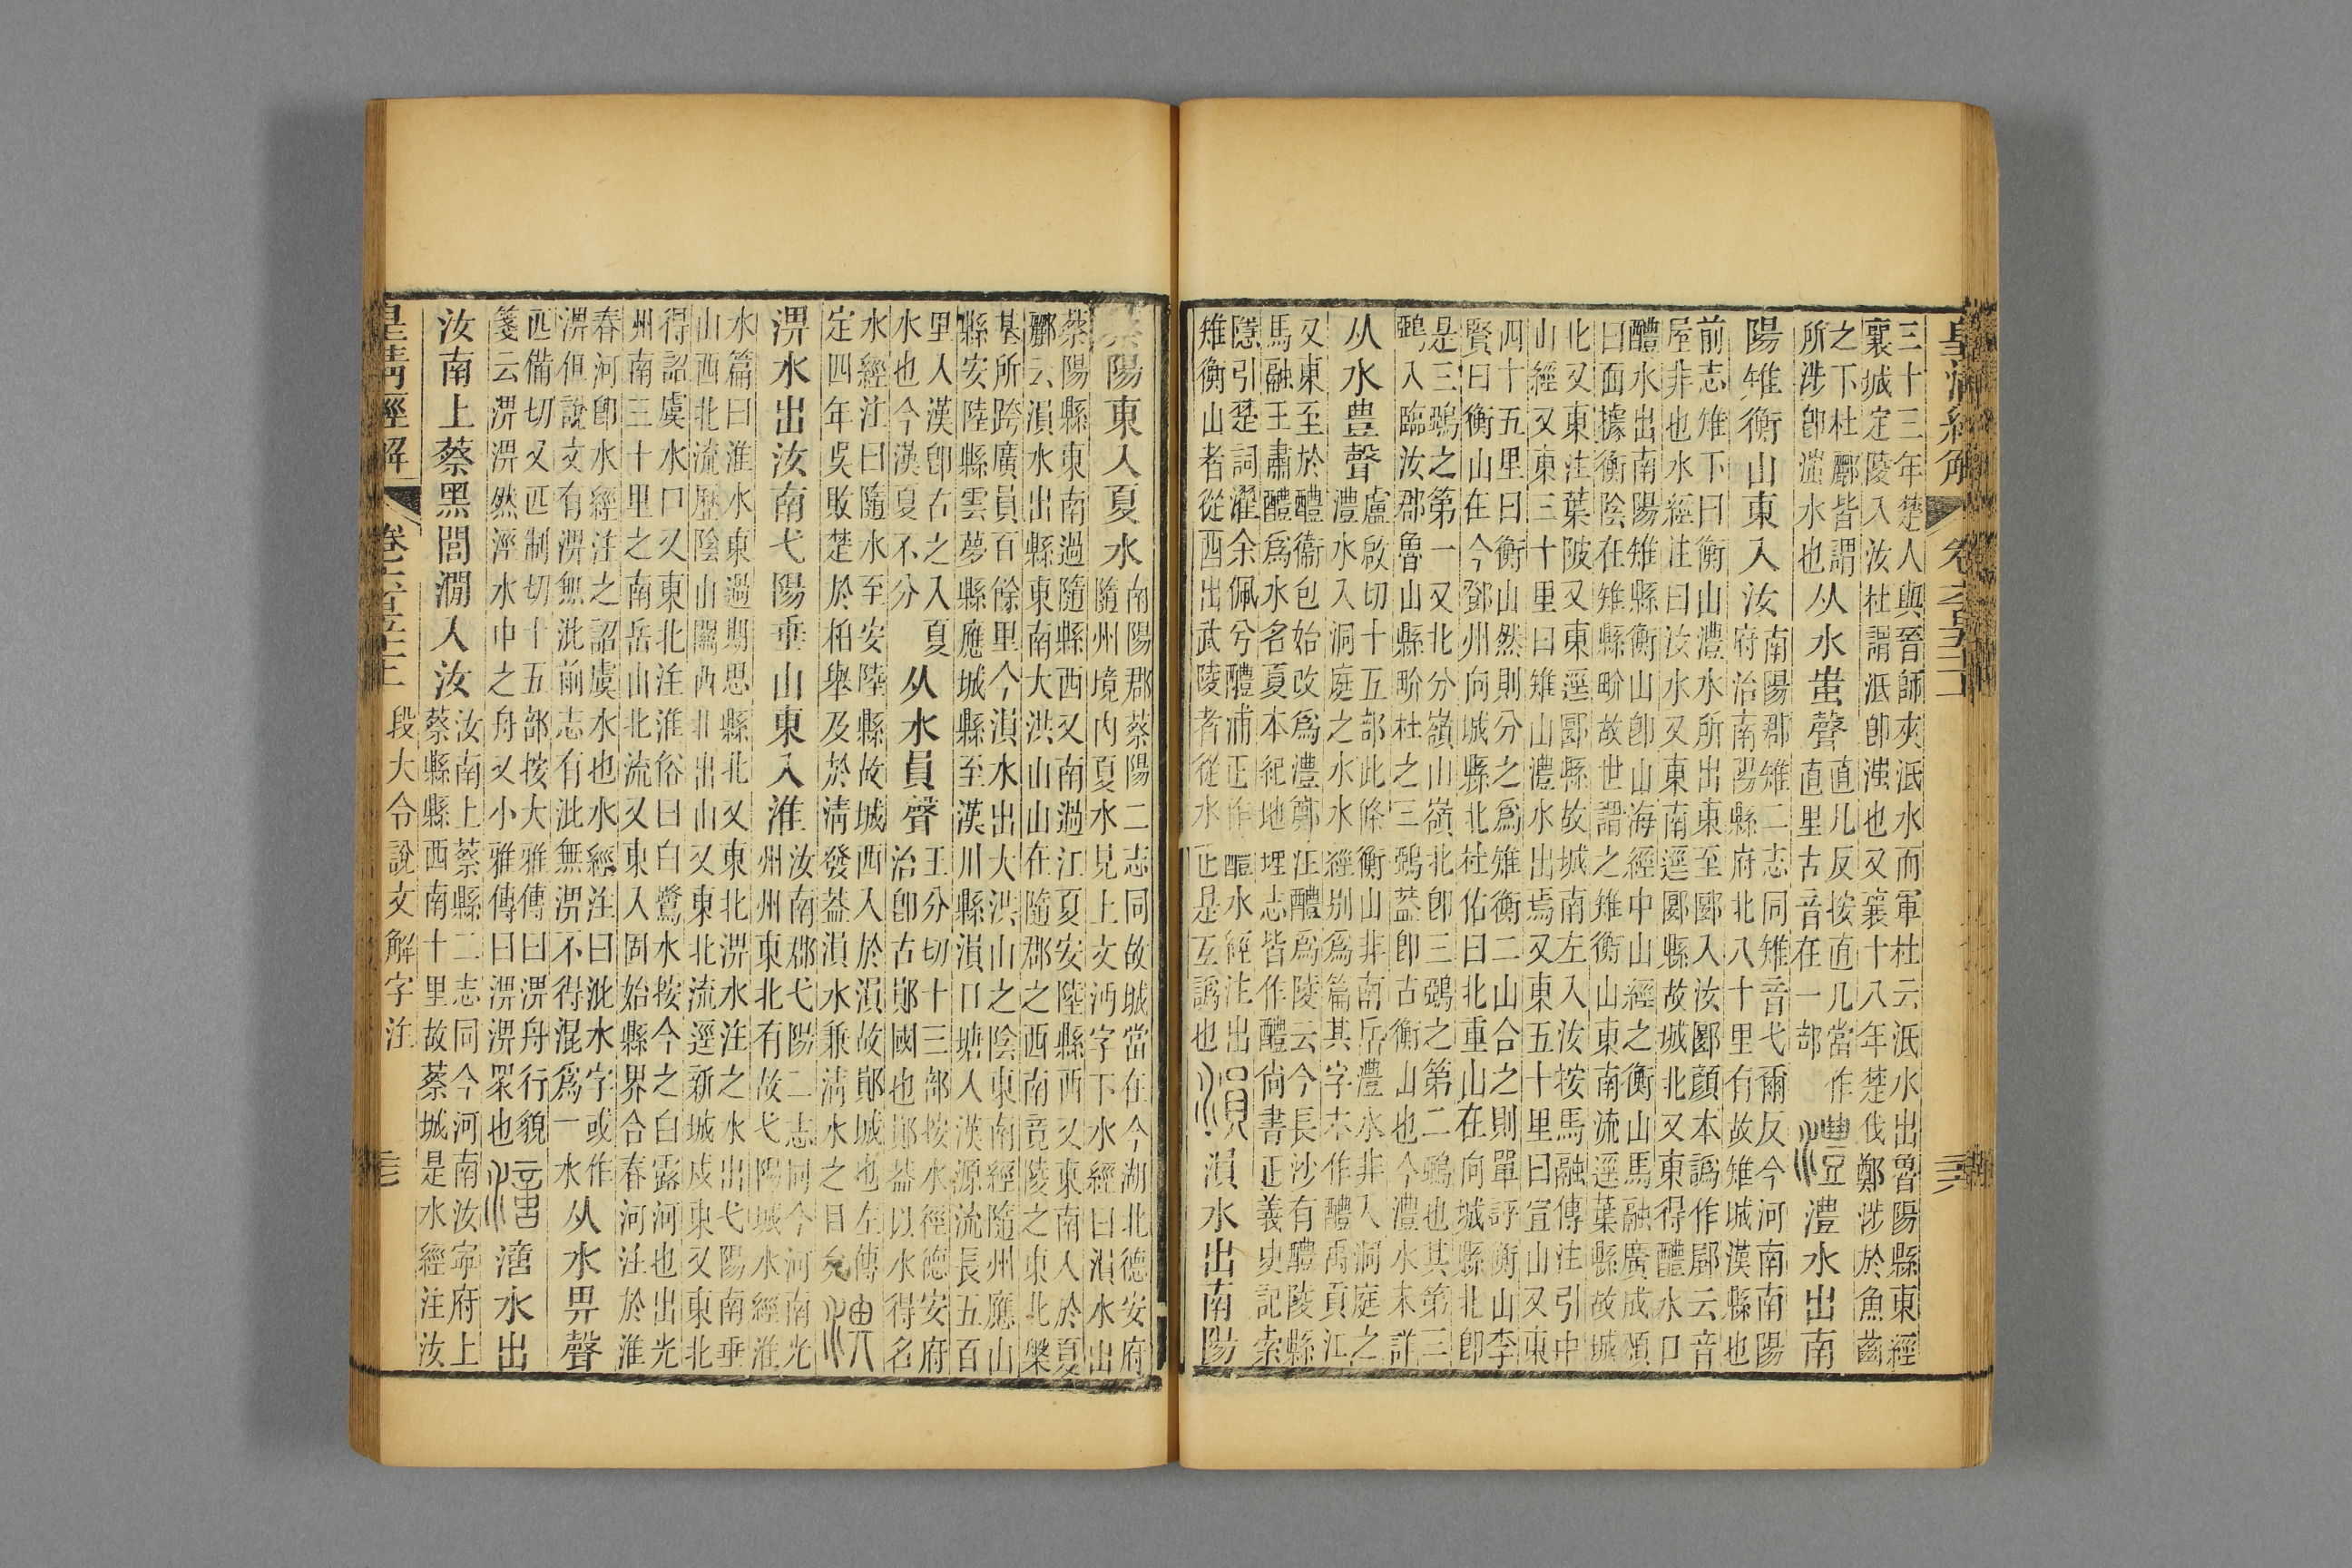 皇淸經解
三十三年楚人與晉師夾泜水而軍杜云泜水出魯陽縣東經
襄城定陵入汝杜謂泜卽滍也又襄十八年楚伐鄭涉於魚齒
之下杜酈皆謂
所涉卽滍水也
从水蚩聲
直几反按直几當作
直里古音在一部
澧水出南
陽雉衡山東入汝
南陽郡雉二志同雉音弋爾反今河南南陽
府治南陽縣府北八十里有故雉城漢縣也
前志雉下曰衡山澧水所出東至郾入汝郾顏本譌作郾云音
屋非也水經注曰汝水又東南逕郾縣故城北又東得醴水口
醴水出南陽雉縣衡山卽山海經中山經之衡山馬融廣成頌
曰面據衡陰在雉縣畍故世謂之雉衡山東南流逕葉縣故城
北又東注葉陂又東逕郾縣故城南左入汝按馬融傳注引中
山經又東三十里曰雉山澧水出焉又東五十里曰宣山又東
四十五里曰衡山然則分之爲雉衡二山合之則單評衡山李
賢曰衡山在今鄧州向城縣北杜佑曰北重山在向城縣北卽
是三鵶之第一又北分嶺山嶺北卽三鵶之第二鵶也其第三
鵶入臨汝郡魯山縣畍杜之三鵶蓋卽古衡山也今澧水未詳
从水豊聲
盧啟切十五部此條衡山非南岳澧水非入洞庭之
澧水入洞庭之水水經別爲篇其字本作醴禹貢江
又東至於醴衞包始改爲澧鄭注醴爲陵云今長沙有醴陵縣
馬融王肅醴爲水名夏本紀地理志皆作醴尙書正義史記索
隱引楚詞濯余佩兮醴浦正作醴水經注出
雉衡山者從酉出武陵者從水正是互譌也
溳水出南陽
蔡陽東入夏水
南陽郡蔡陽二志同故城當在今湖北德安府
隨州境内夏水見上文沔字下水經曰溳水出
蔡陽縣東南過隨縣西又南過江夏安陸縣西又東南入於夏
酈云溳水出縣東南大洪山山在隨郡之西南竟陵之東北槃
基所跨廣員百餘里今溳水出大洪山之陰東南經隨州應山
縣安陸縣雲夢縣應城縣至漢川縣溳口塘入漢源流長五百
里入漢卽古之入夏
水也今漢夏不分
从水員聲
王分切十三部按水徑德安府
治卽古鄖國也鄖蓋以水得名
水經注曰隨水至安陸縣故城西入於溳故鄖城也左傳
定四年吳敗楚於柏舉及於淸發蓋溳水兼淸水之目矣
淠水出汝南弋陽垂山東入淮
汝南郡弋陽二志同今河南光
州州東北有故弋陽城水經淮
水篇曰淮水東過期思縣北又東北淠水注之水出弋陽南垂
山西北流歷陰山關西北出山又東北流逕新城戍東又東北
得詔虞水口又東北注淮俗曰白鷺水按今之白露河也出光
州南三十里之南岳山北流又東入固始縣界合春河注於淮
春河卽水經注之詔虞水也水經注曰沘水字或作
淠但說文有淠無沘前志有沘無淠不得混爲一水
从水畀聲
匹備切又匹制切十五部按大雅傳曰淠舟行貌
箋云淠淠然涇水中之舟又小雅傳曰淠淠眾也
澺水出
汝南上蔡黑閭澗入汝
汝南上蔡縣二志同今河南汝寧府上
蔡縣縣西南十里故蔡城是水經注汝
皇淸經解
段大令說文解字注